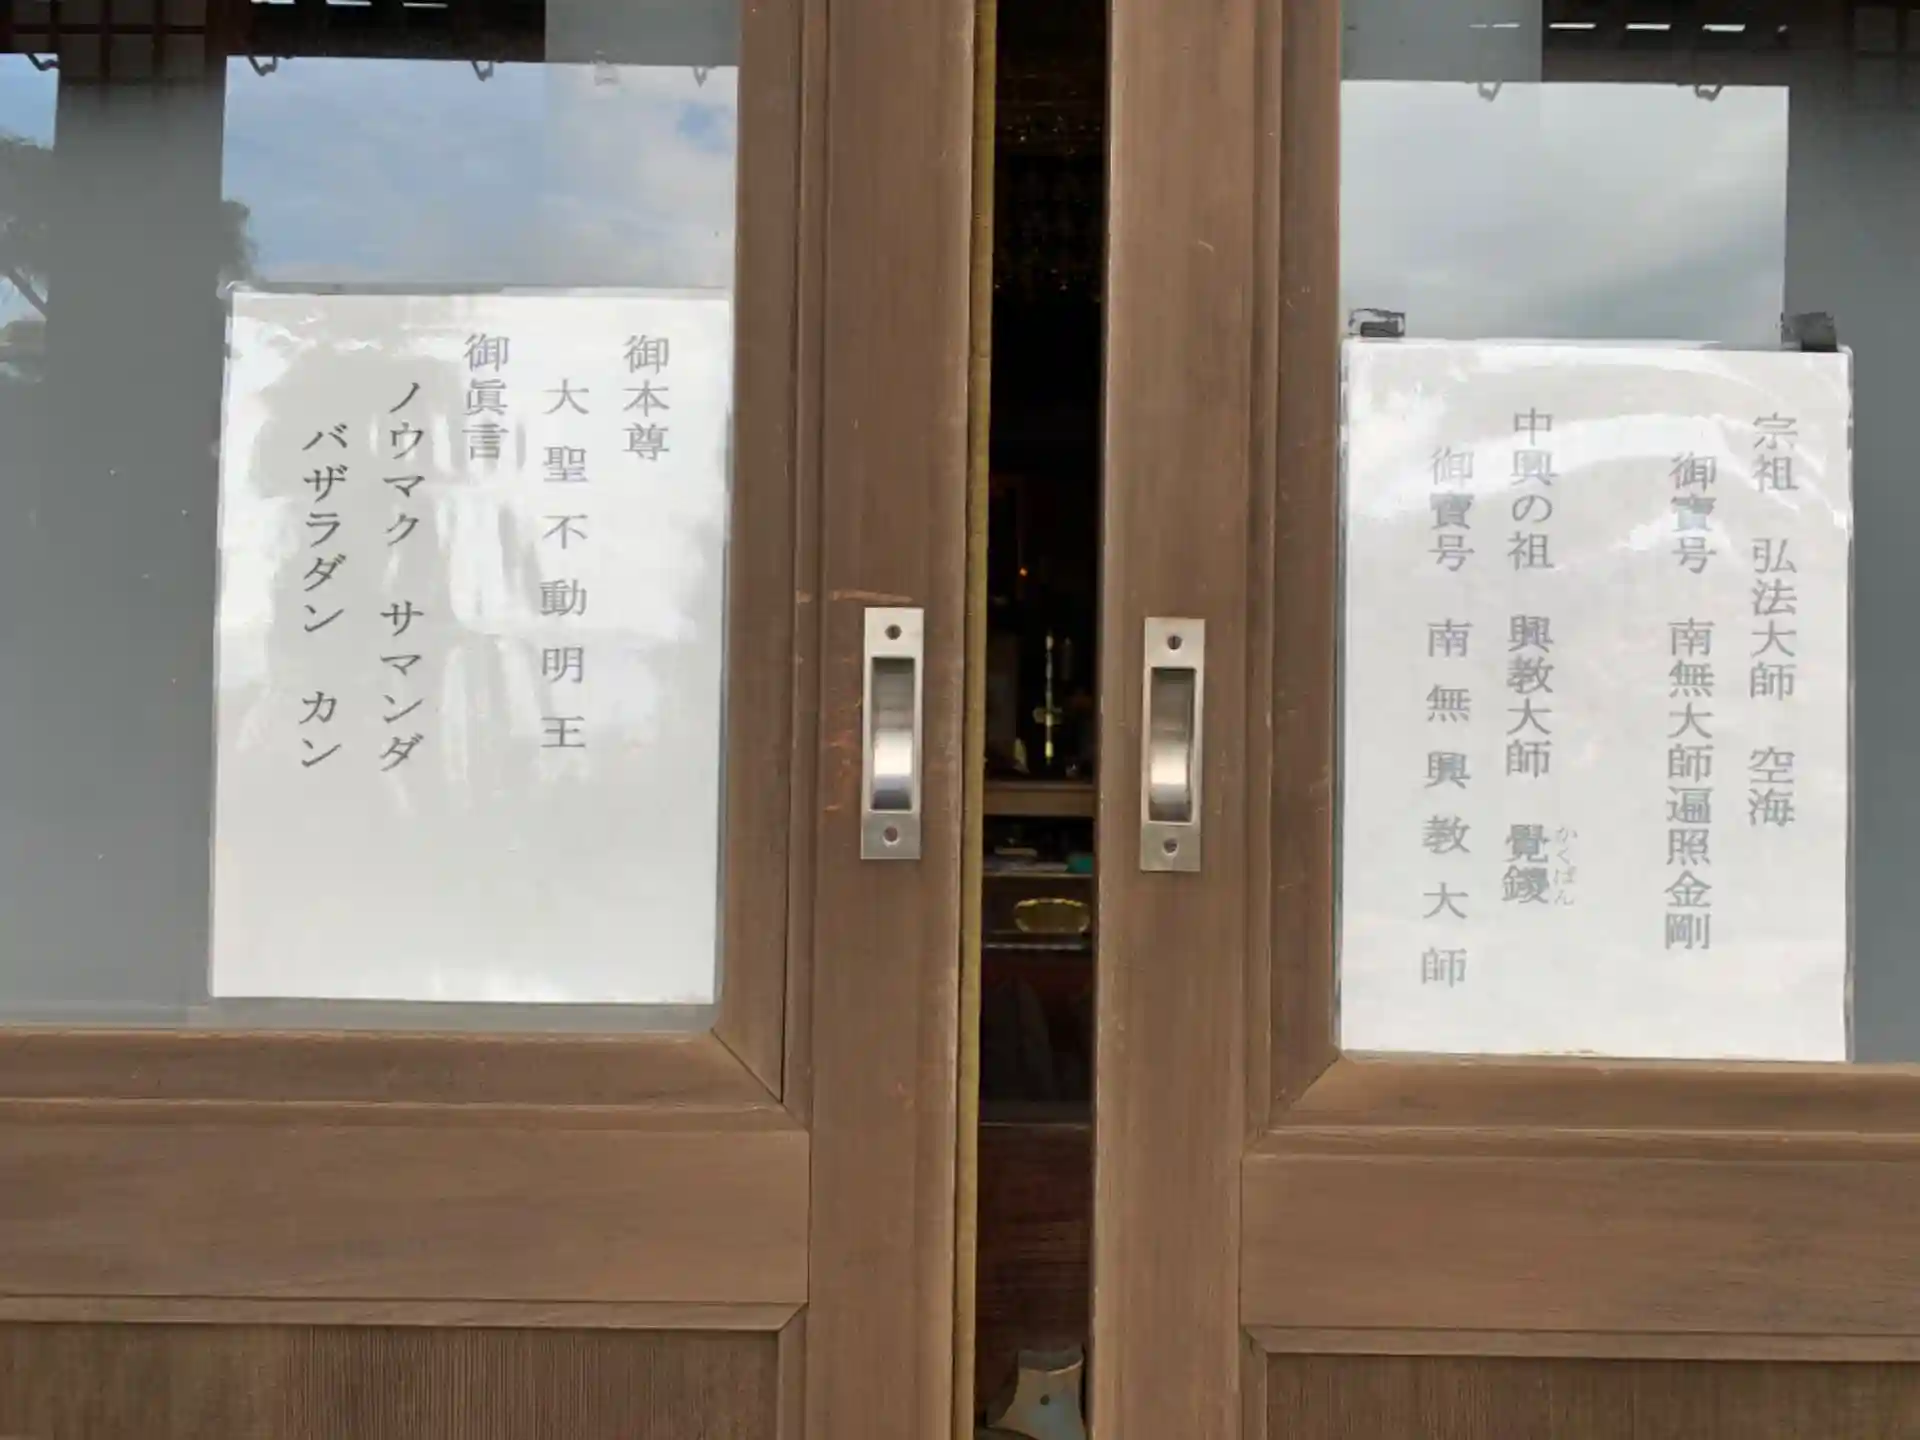 宗祖　弘法大師　空海
御寶号　南無大師遍照金剛
中興の祖　興教大師　覺鑁
かくばん
御寶号　南無興教大師
御本尊
大聖不動明王
御眞言
ノウマク　サマンダ
バザラダン　カン